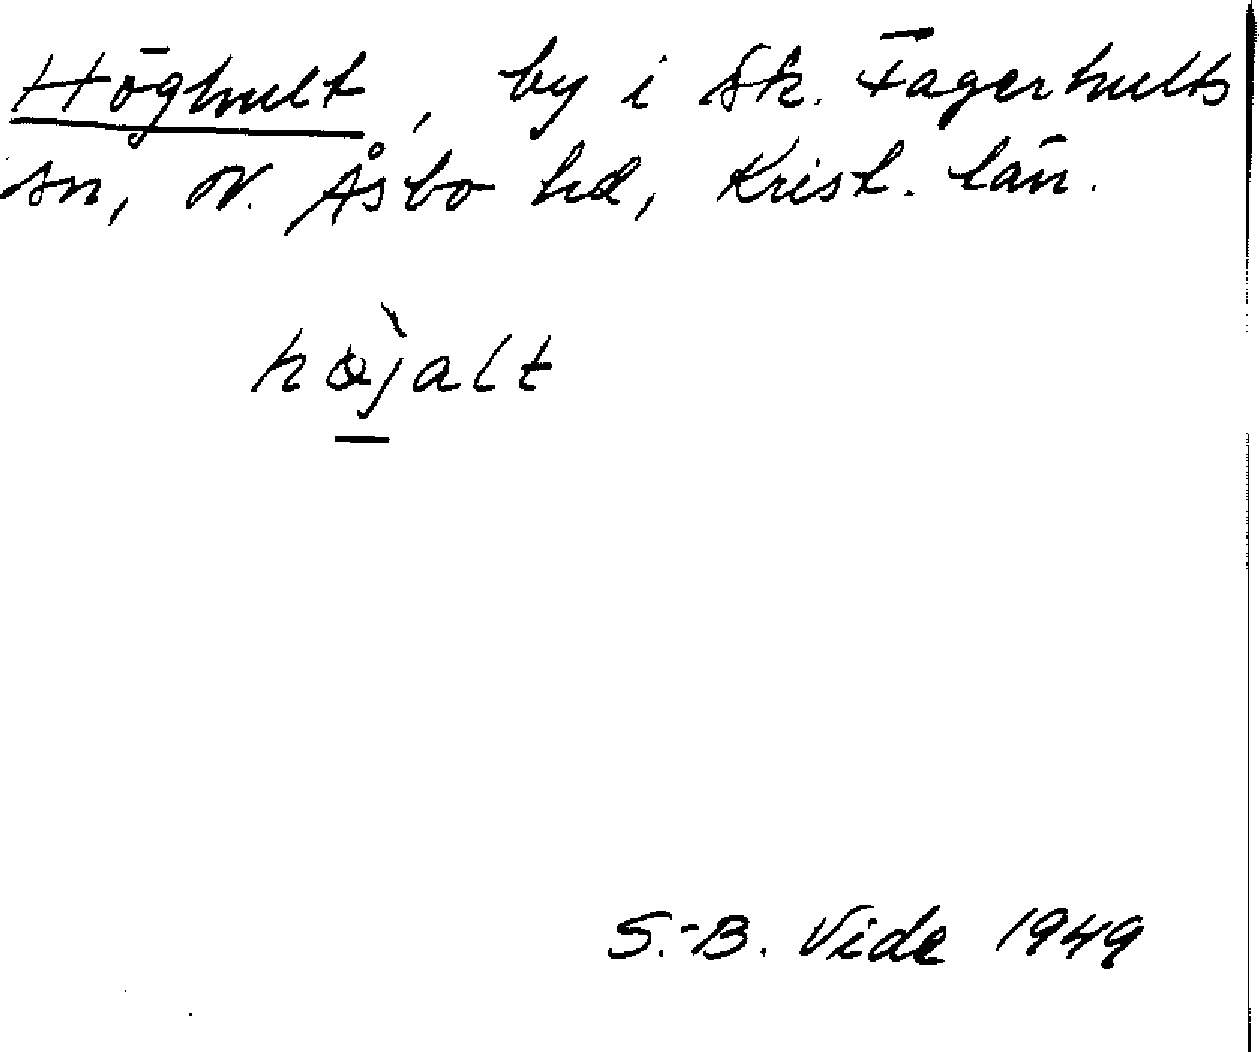 Höghult, by i Sk. Fagerhults
sn, N. Åsbo hd, Krist. län.
hø̀jalt
S.-B. Vide 1949